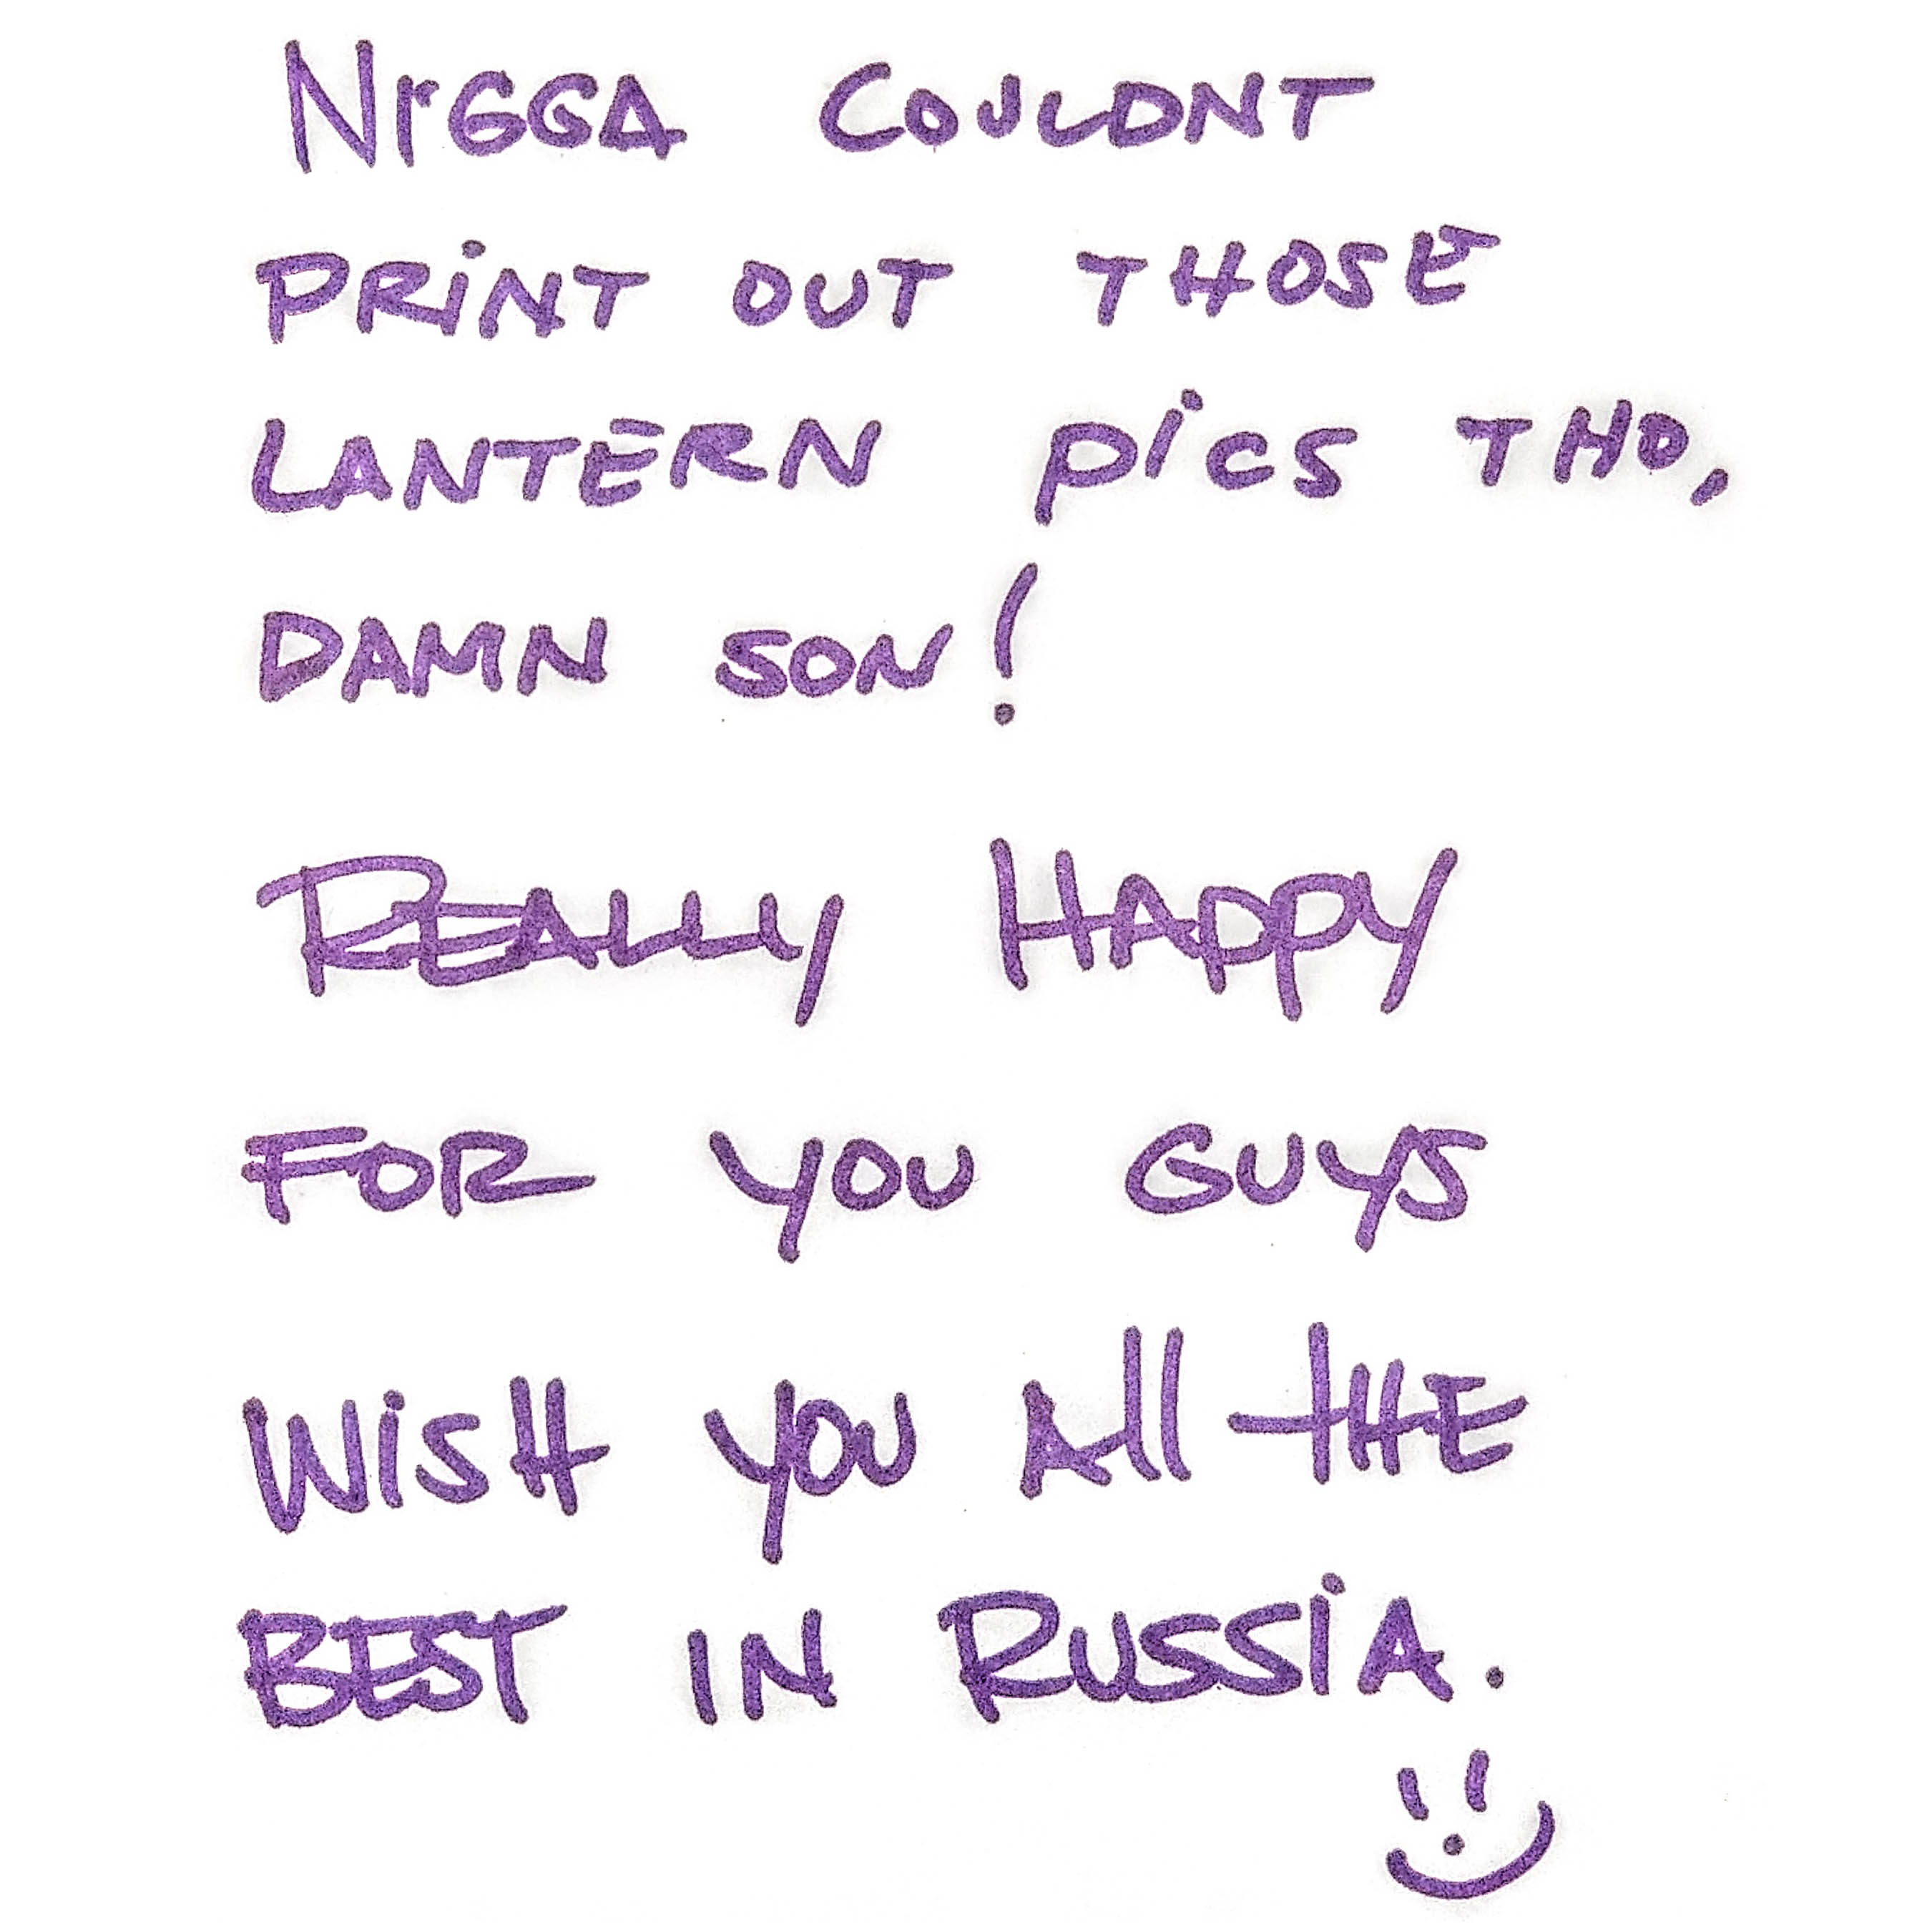 NIGGA COULDNT
PRiNT OUT THOSE
LANTERN PiCS THO,
DAMN SON!
REALLY HAPPY
FOR YOU GUYS
WiSH YOU All THE
BEST IN RUSSiA.